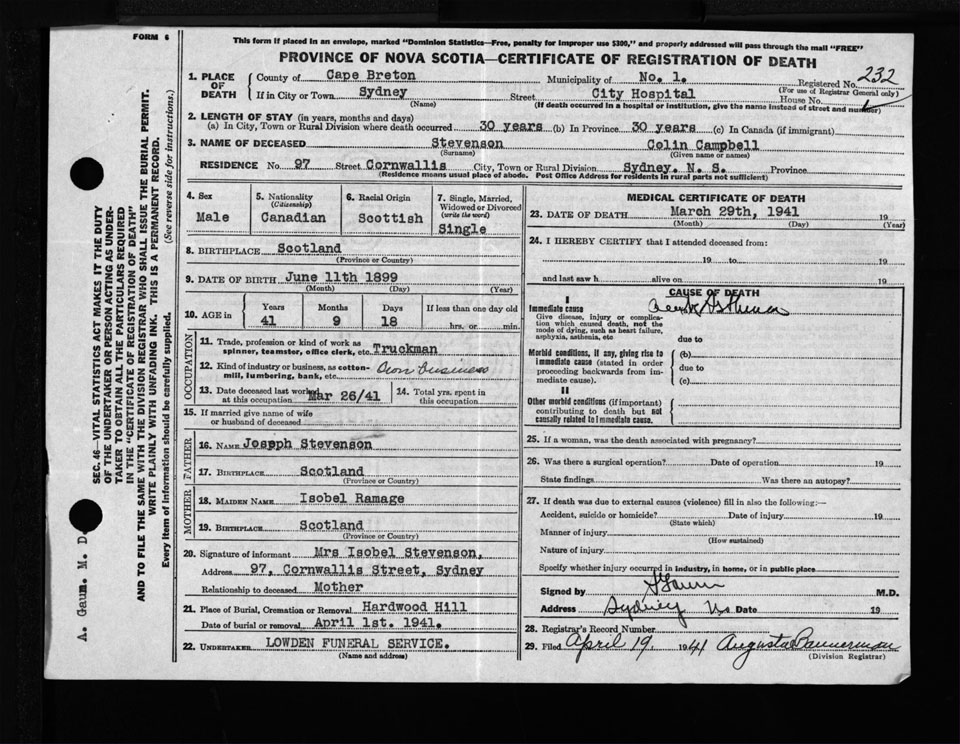 FORM 6
This form if placed in an envelope, marked "Dominion Statistics—Free, penalty for improper use $300," and properly addressed will pass through the mail "FREE"
PROVINCE OF NOVA SCOTIA—CERTIFICATE OF REGISTRATION OF DEATH
SEC. 46—VITAL STATISTICS ACT MAKES IT THE DUTY
OF THE UNDERTAKER OR PERSON ACTING AS UNDER-
TAKER TO OBTAIN ALL THE PARTICULARS REQUIRED
IN THE "CERTIFICATE OF REGISTRATION OF DEATH"
AND TO FILE THE SAME WITH THE DIVISION REGISTRAR WHO SHALL ISSUE THE BURIAL PERMIT.
WRITE PLAINLY WITH UNFADING INK. THIS IS A PERMANENT RECORD.
Every item of information should be carefully supplied. (See reverse side for instructions.)
A. Gaum. M. D
1. PLACE OF DEATH
County of Cape Breton Municipality of No. 1. Registered No. 232
(For use of Registrar General only)
If in City or Town Sydney Street City Hospital House No.
(Name) (If death occurred in a hospital or institution, give the name instead of street and number)
2. LENGTH OF STAY (in years, months and days)
(a) In City, Town or Rural Division where death occurred 30 years (b) In Province 30 years (c) In Canada (if immigrant)
3. NAME OF DECEASED Stevenson Colin Campbell
(Surname) (Given name or names)
RESIDENCE No. 97 Street Cornwallis City, Town or Rural Division Sydney. N. S. Province
(Residence means usual place of abode. Post Office Address for residents in rural parts not sufficient)
4. Sex
Male
5. Nationality
(Citizenship)
Canadian
6. Racial Origin
Scottish
7. Single, Married,
Widowed or Divorced
(write the word)
Single
8. BIRTHPLACE Scotland
(Province or Country)
9. DATE OF BIRTH June 11th 1899
(Month) (Day) (Year)
10. AGE IN Years Months Days If less than one day old
41 9 18 hrs. or min.
OCCUPATION
11. Trade, profession or kind of work as
spinner, teamster, office clerk, etc. Truckman
12. Kind of industry or business, as cotton-
mill, lumbering, bank, etc. Own Business
13. Date deceased last worked
at this occupation Mar 26/41
14. Total yrs. spent in
this occupation
15. If married give name of wife
or husband of deceased
FATHER
16. NAME Joseph Stevenson
17. BIRTHPLACE Scotland
(Province or Country)
MOTHER
18. MAIDEN NAME Isobel Ramage
19. BIRTHPLACE Scotland
(Province or Country)
20. Signature of informant Mrs Isobel Stevenson,
Address 97, Cornwallis Street, Sydney
Relationship to deceased Mother
21. Place of Burial, Cremation or Removal Hardwood Hill
Date of burial or removal April 1st. 1941.
22. UNDERTAKER LOWDEN FUNERAL SERVICE.
(Name and address)
MEDICAL CERTIFICATE OF DEATH
23. DATE OF DEATH March 29th, 1941 19
(Month) (Day) (Year)
24. I HEREBY CERTIFY that I attended deceased from:
19 to 19
and last saw h alive on 19
CAUSE OF DEATH
I
Immediate cause
Give disease, injury or complica-
tion which caused death, not the
mode of dying, such as heart failure,
asphyxia, asthenia, etc
due to
Morbid conditions, if any, giving rise to
immediate cause (stated in order
proceeding backwards from im-
mediate cause).
(b)
due to
(c)
II
Other morbid conditions (if important)
contributing to death but not
causally related to immediate cause.
25. If a woman, was the death associated with pregnancy?
26. Was there a surgical operation? Date of operation 19
State findings Was there an autopsy?
27. If death was due to external causes (violence) fill in also the following:—
Accident, suicide or homicide? Date of injury 19
(State which)
Manner of injury
(How sustained)
Nature of injury
Specify whether injury occurred in industry, in home, or in public place
Signed by Gaum M.D.
Address Sydney Ns Date 19
28. Registrar's Record Number
29. Filed April 19, 1941 Augusta Bannerman
(Division Registrar)